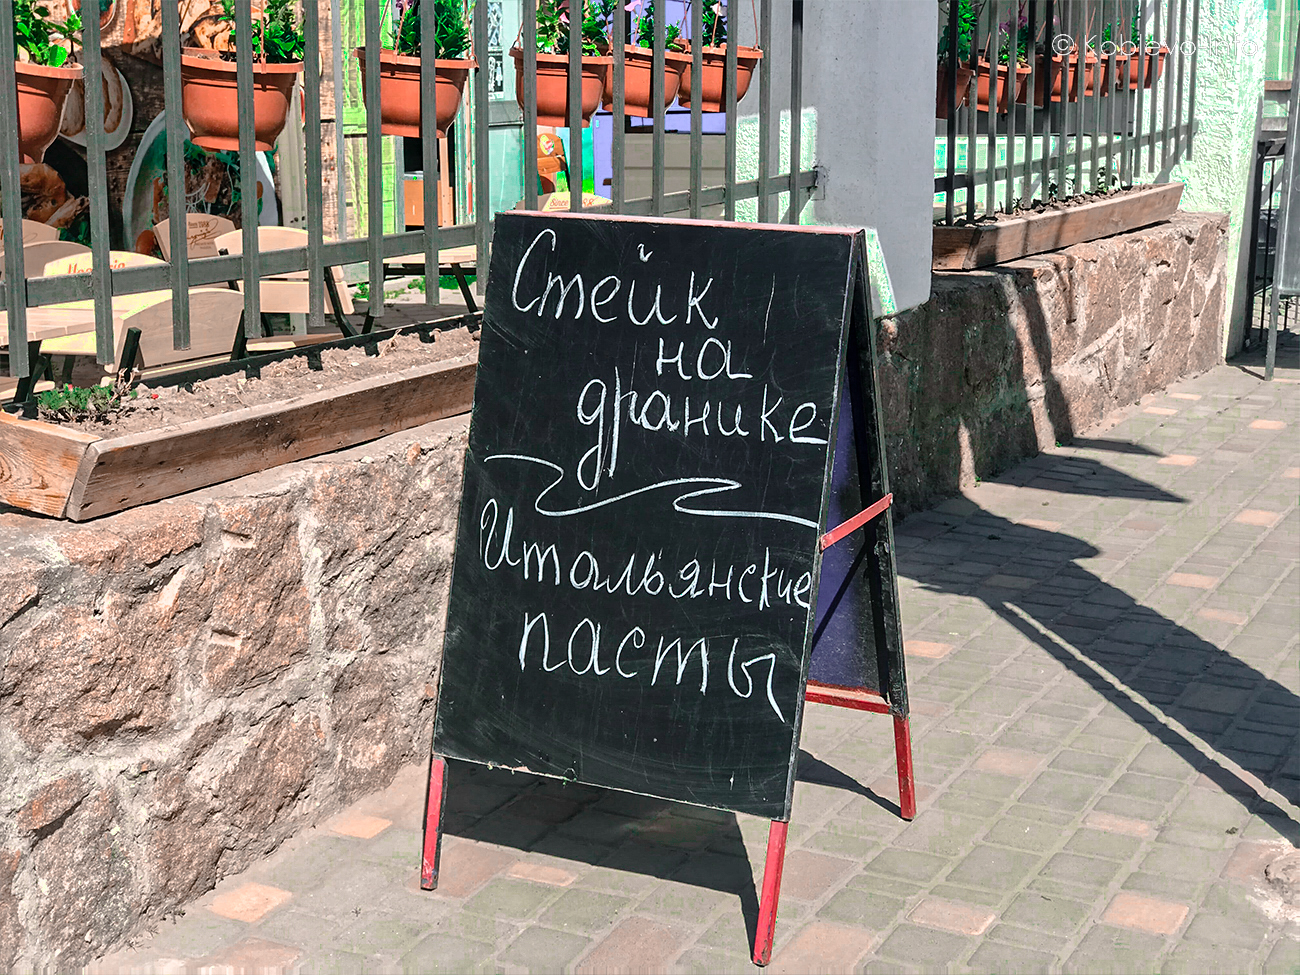 © Koblevo-Info
Стейк
на
дранике
Итальянские
пасты